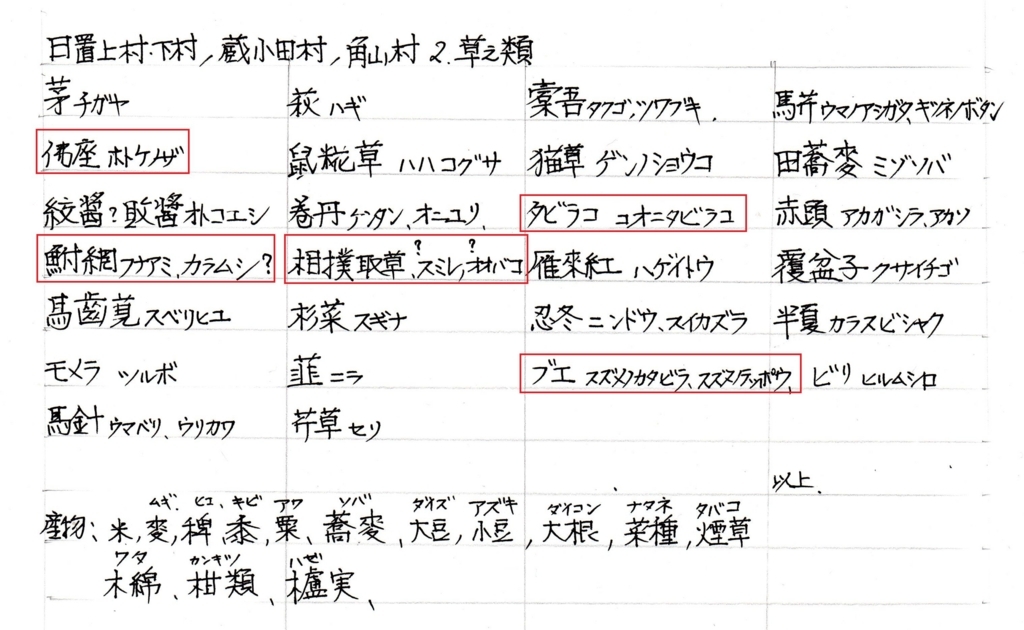 日置上村・下村，蔵小田村，角山村 2. 草之類
茅 チガヤ 萩 ハギ 橐吾 タクゴ、ツワブキ． 馬芹 ウマノアシガタ、キツネノボタン
佛座 ホトケノザ 鼠糀草 ハハコグサ 猫草 ゲンノショウコ 田蕎麥 ミゾソバ
紋醤？敗醤 オトコエシ 巻丹 ケンタン、オニユリ、 タビラコ コオニタビラコ 赤頭 アカガシラ、アカソ
鮒網 フナアミ、カラムシ？ 相撲取草、スミレ？、オオバコ？ 雁来紅 ハゲイトウ 覆盆子 クサイチゴ
馬歯莧 スベリヒユ 杉菜 スギナ 忍冬 ニンドウ、スイカズラ 半夏 カラスビシャク
モメラ ツルボ 韮 ニラ ブエ スズメノカタビラ、スズメノテッポウ、 ビリ ヒルムシロ
馬針 ウマベリ、ウリカワ 芹草 セリ
以上．
ムギ、ヒユ、キビ アワ ソバ ダイズ アズキ ダイコン ナタネ タバコ
産物；米，麥，稗，黍，粟、蕎麥、大豆，小豆，大根，菜種，煙草
ワタ カンキツ ハゼ
木綿、柑類、櫨実、